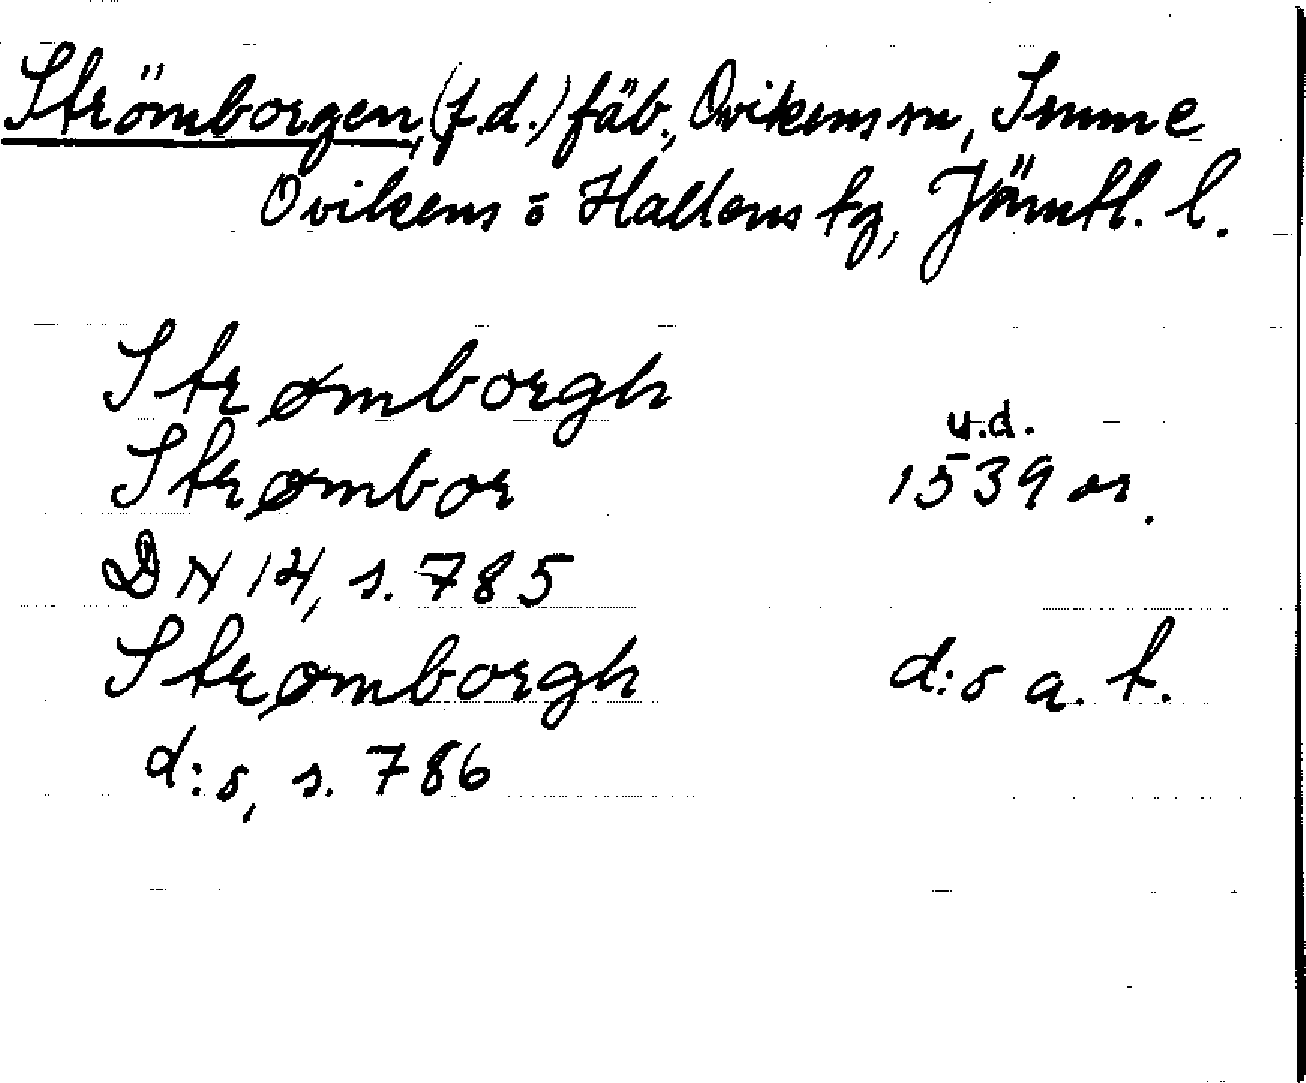 Strömborgen, (f.d.) fäb., Ovikens sn,
Ovikens o Hallens tg, Jämtl. l.
Strømborgh
Strømbor
u.d.
1539 or.
DN 14, s. 785
Strømborgh d:o a. t.
d:o, s. 786